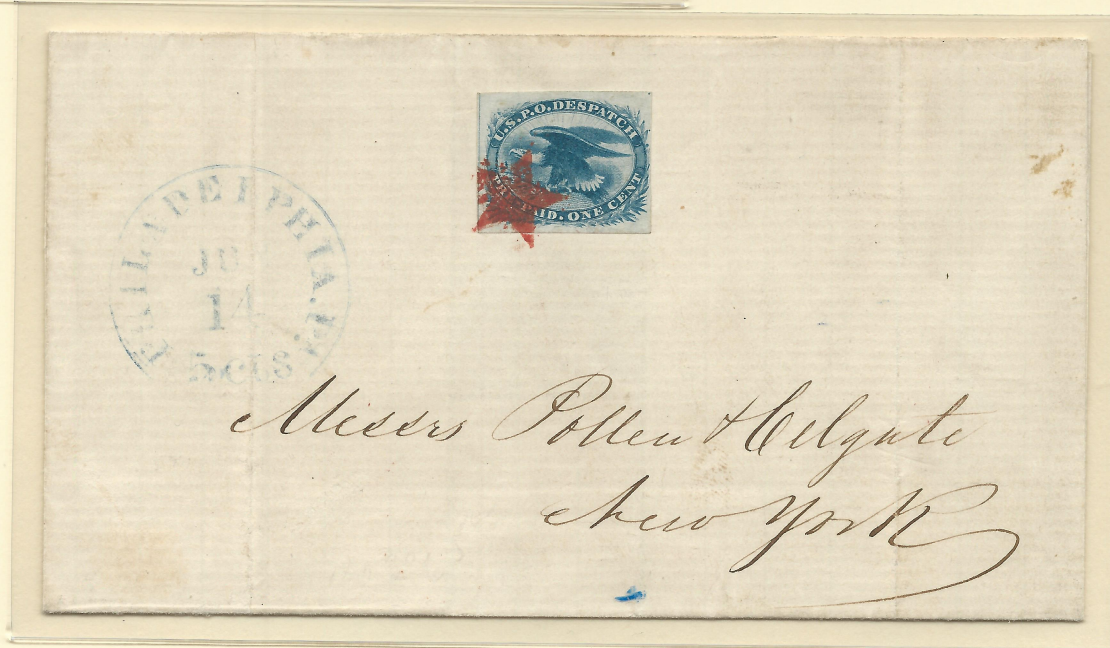 U.S.P.O. DESPATCH
PRE-PAID. ONE CENT
PHILADELPHIA. Pa
5 cts
Messrs Pollen & Colgate
New York